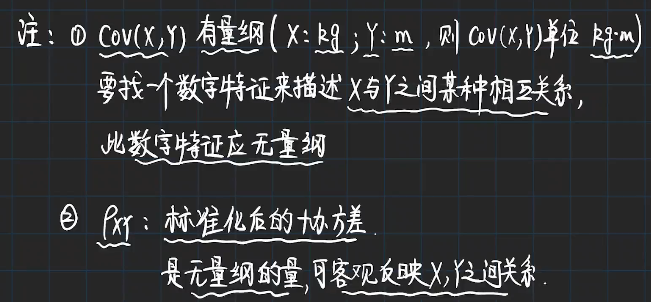 注: ① Cov(X,Y) 有量纲(X:kg; Y:m, 则 Cov(X,Y)单位 kg·m)
要找一个数字特征来描述X与Y之间某种相互关系,
此数字特征应无量纲
② ρxY: 标准化后的协方差.
是无量纲的量,可客观反映X,Y之间关系.